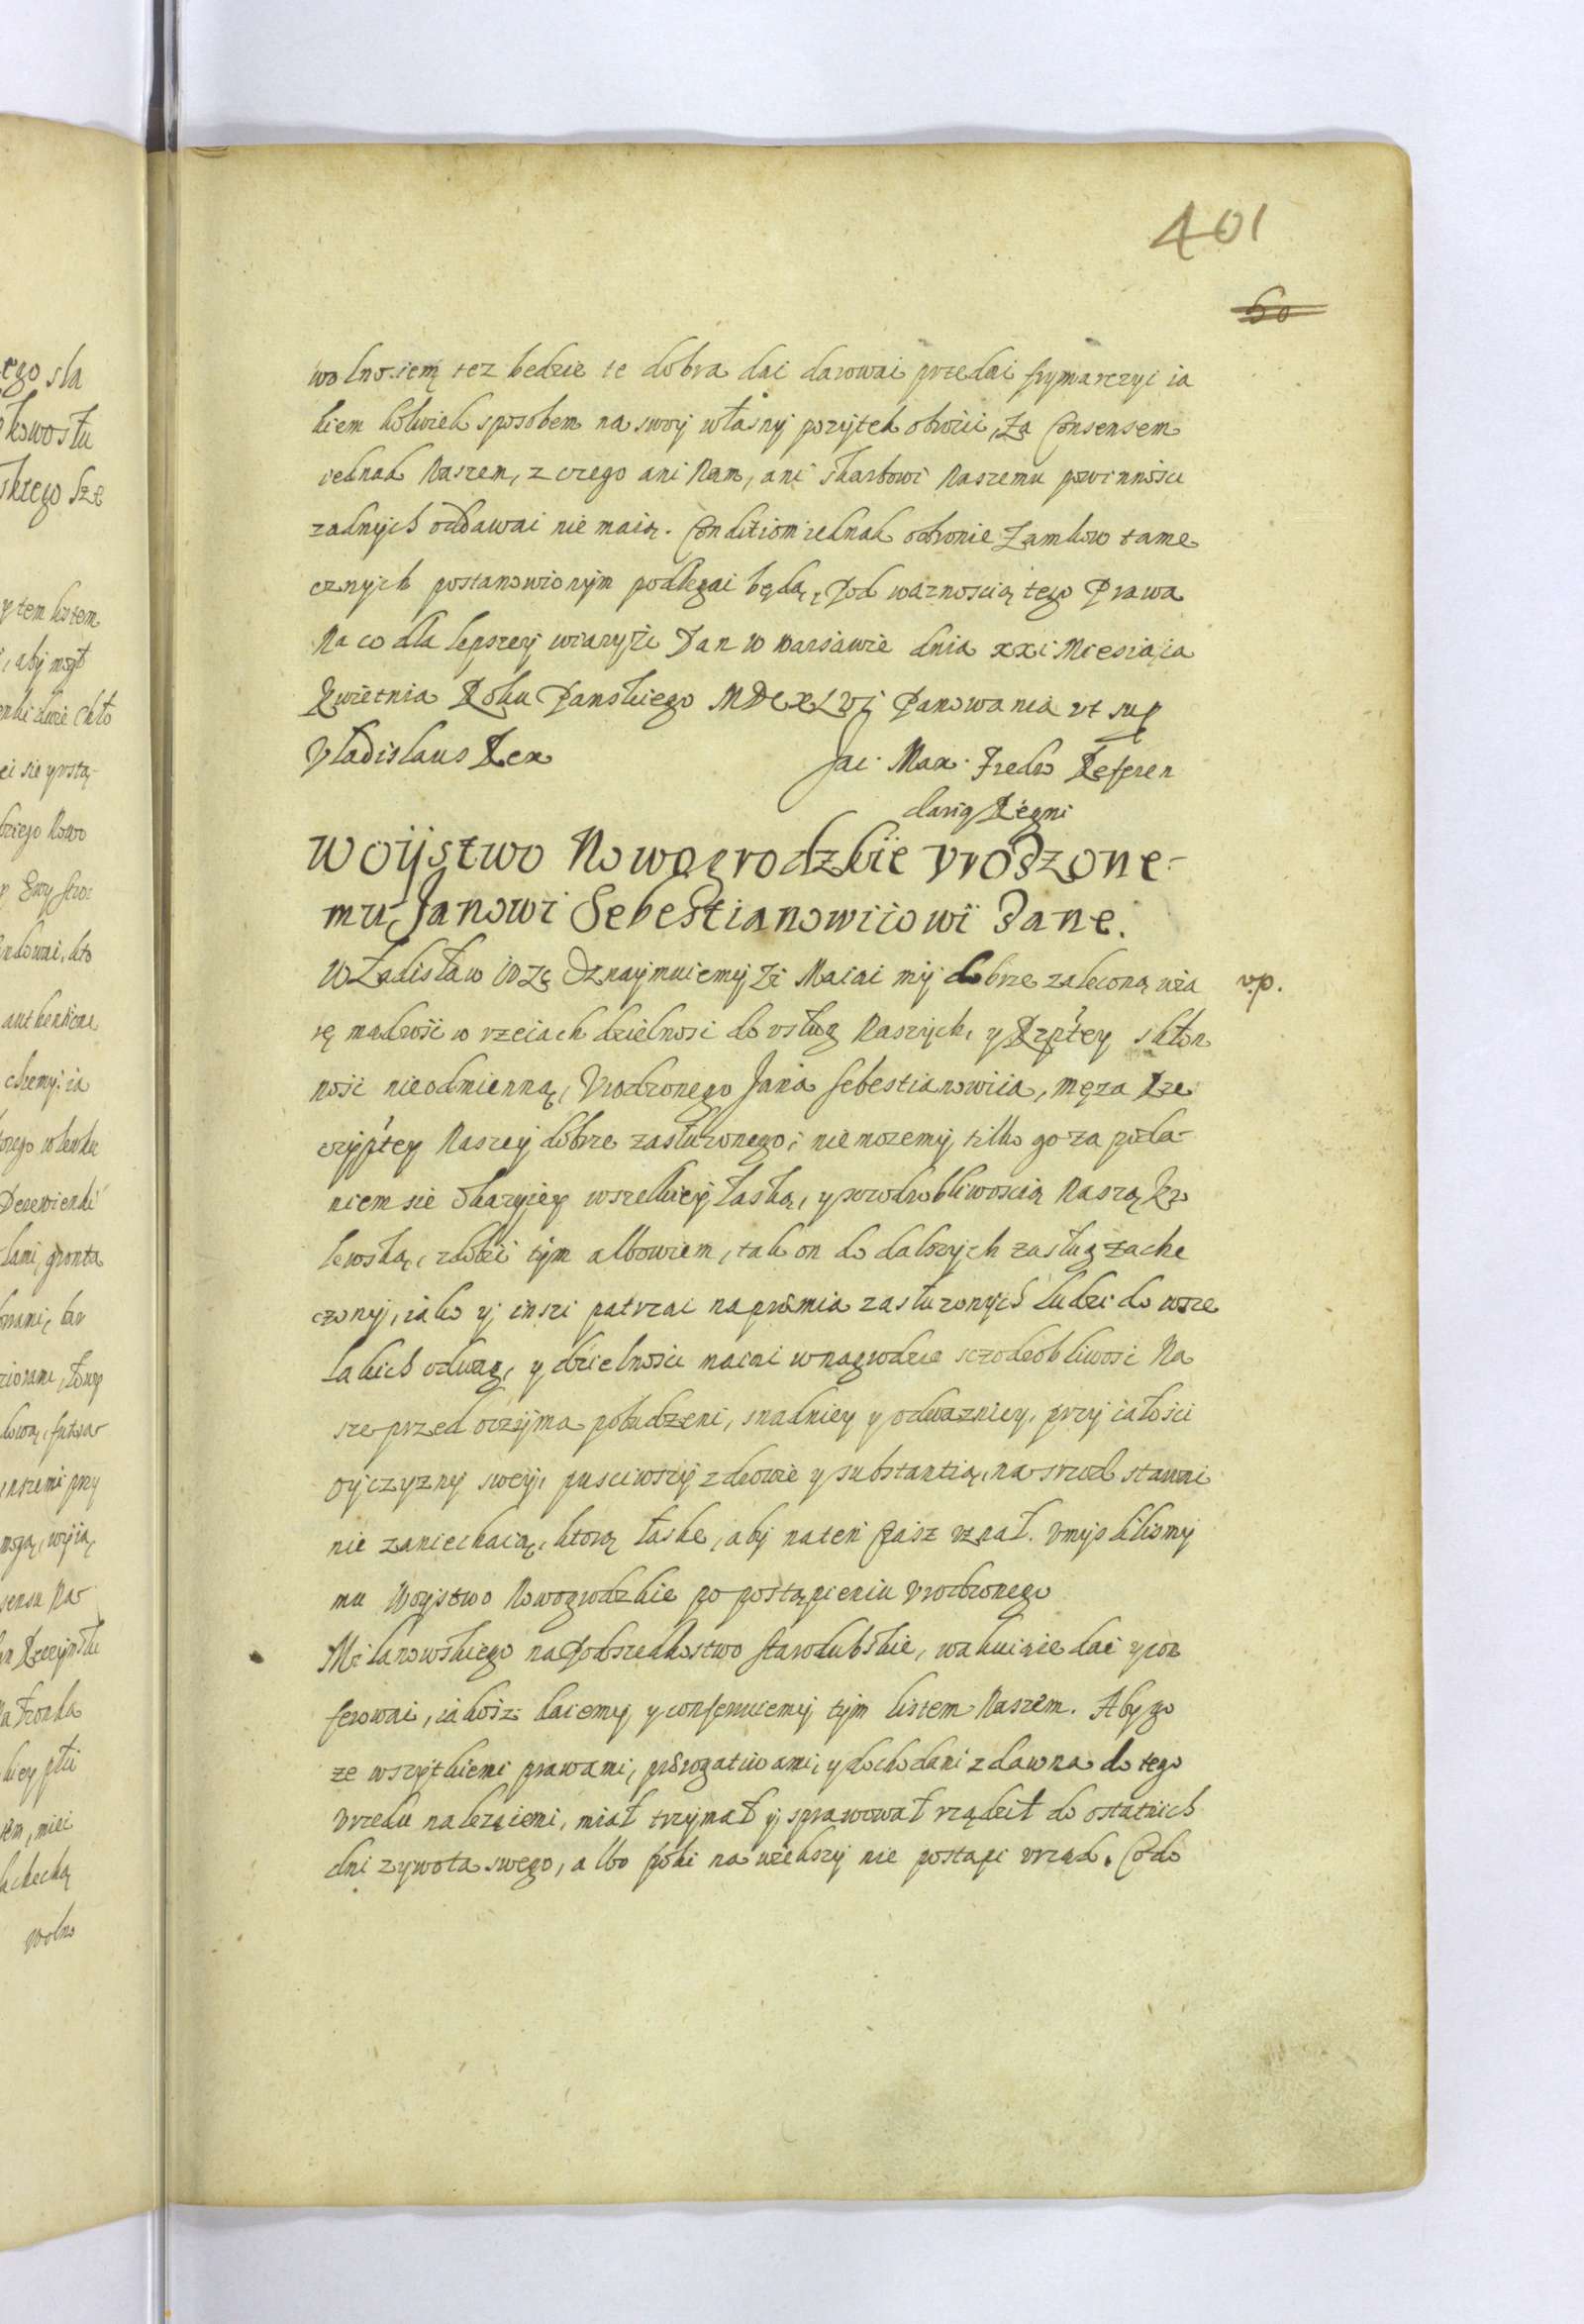 401
60
wolno iemą tez bedzie te dobra dać darować przedać frymarczyć ia
kiem kolwiek sposobem na swoy własny pozytek obroćić, za Consensem
iednak Naszem, z czego ani Nam, ani skarbowi Naszemu powinnośći
zadnych oddawać nie maią. Conditiom iednak obronie Zamkow tame
cznych postanowionym podlegać będą, Pod waznoscią tego Prawa
Na co dla lepszey wiary etc Dan w Warszawie dnia xxi Miesiąca
Kwietnia Roku Panskiego MDCXLVI Panowania vt sup
Vladislaus Rex Jac. Max. Fredro Referen
darig Regni
Woystwo Nowogrodzkie vrodzone-
mu Janowi Sebestianowicowi dane.
Władisław IVze Oznaymuiemy etc Maiąc my dobrze zaleconą wia v.p.
rę mądrość w rzeczach dzielnosc do vsług Naszych, y Rzptey skłon
nosc nieodmienną, Vrodzonego Jana Sebestianowica, męza Rze
czyptey Naszey dobrze zasłuzonego; nie mozemy tilko go za poda-
niem sie Okazyiey wszelkiey łaską, y szczodrobliwoscią Naszą Kro
lewską, zdobić tym albowiem, tak on do dalszych zasług zache
cony, iako y inszi patrzac na premia zasłuzonych ludzi do wsze
lakich odwag, y dzielnosci maiąc w nagrodzie sczodrobliwosc Na
sze przed oczyma pobudzeni, snadniey y odwazniey, przy całości
oyczyzny swey, pusciwszy zdrowie y substantią, na szrod stawac
nie zaniechaią, ktorą łaske, aby na ten czasz vznał. vmyslilismy
mu Woystwo Nowogrodzkie po postąpieniu vrodzonego
Milanowskiego na Podszedkostwo Starodubskie, wakuiące dać y con
ferować, iakosz daiemy, y conferuiemy tym listem Naszem. Aby go
ze wszytkiemi prawami, prerogatiwami, y dochodami zdawna do tego
vrzedu nalezącemi, miał trzymał y sprawował rządził do ostatnich
dni zywota swego, albo poki na wiekszy nie postąpi vrząd. Co do